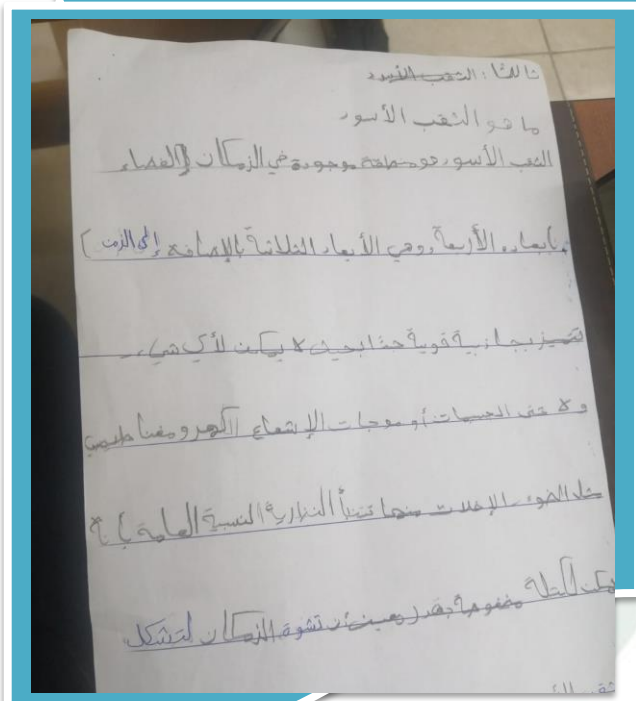 ثالثا: الثقب الأسود
ما هو الثقب الأسود
الثقب الأسود هو منطقة موجودة في الزمكان (الفضاء
بأبعاده الأربعة، وهي الأبعاد الثلاثة بالإضافة إلى الزمن)
تتميز بجاذبية قوية جدا بحيث لا يمكن لأي شيء
ولا حتى الجسيمات أو موجات الإشعاع الكهرومغناطيسي
مثل الضوء - الإفلات منها تتنبأ النظرية النسبية العامة بأنه
يمكن لكتلة مضغوطة بقدر معين أن تشوه الزمكان لتشكل